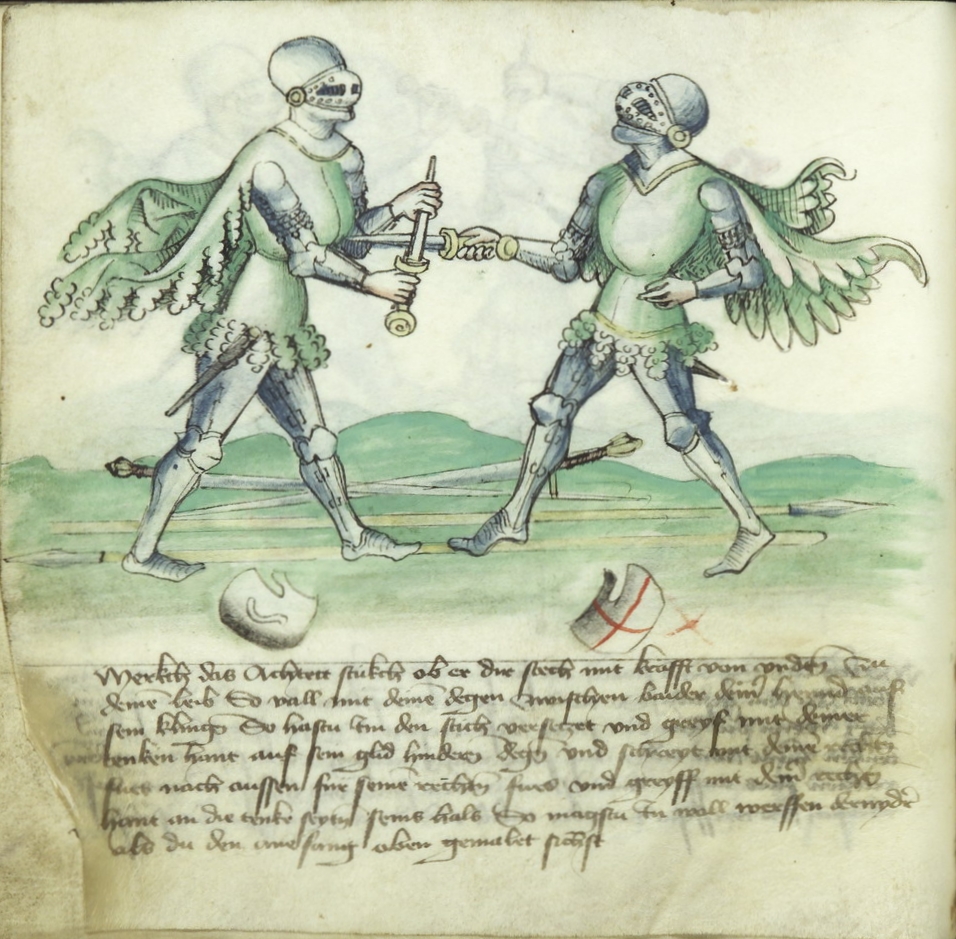 Merkch das Achtett stukch ob er dir stech mit krafft von vnden zu
deinē leib So vall mit deinē degen zwischen baider deinr hennd auf
sein klingen So hastu im den stich versetzet vnd greyf mit deiner
tenken hant auf sein glid hinderm degen vnd schreyt mit deinē rechten
fues nach aussen für seinē rechten fues vnd greyff mit deinr rechten
hant an die tenke seyten seins hals So magstu in wall werffen dernydr
als du den anefang oben gemalet sichst